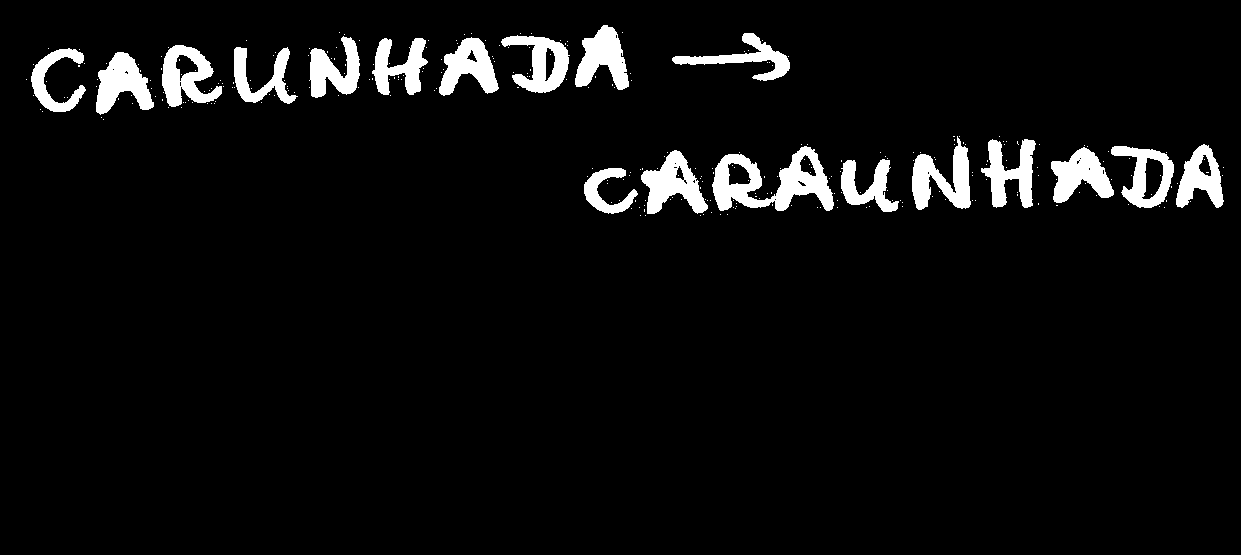 CARUNHADA →
CARAUNHADA